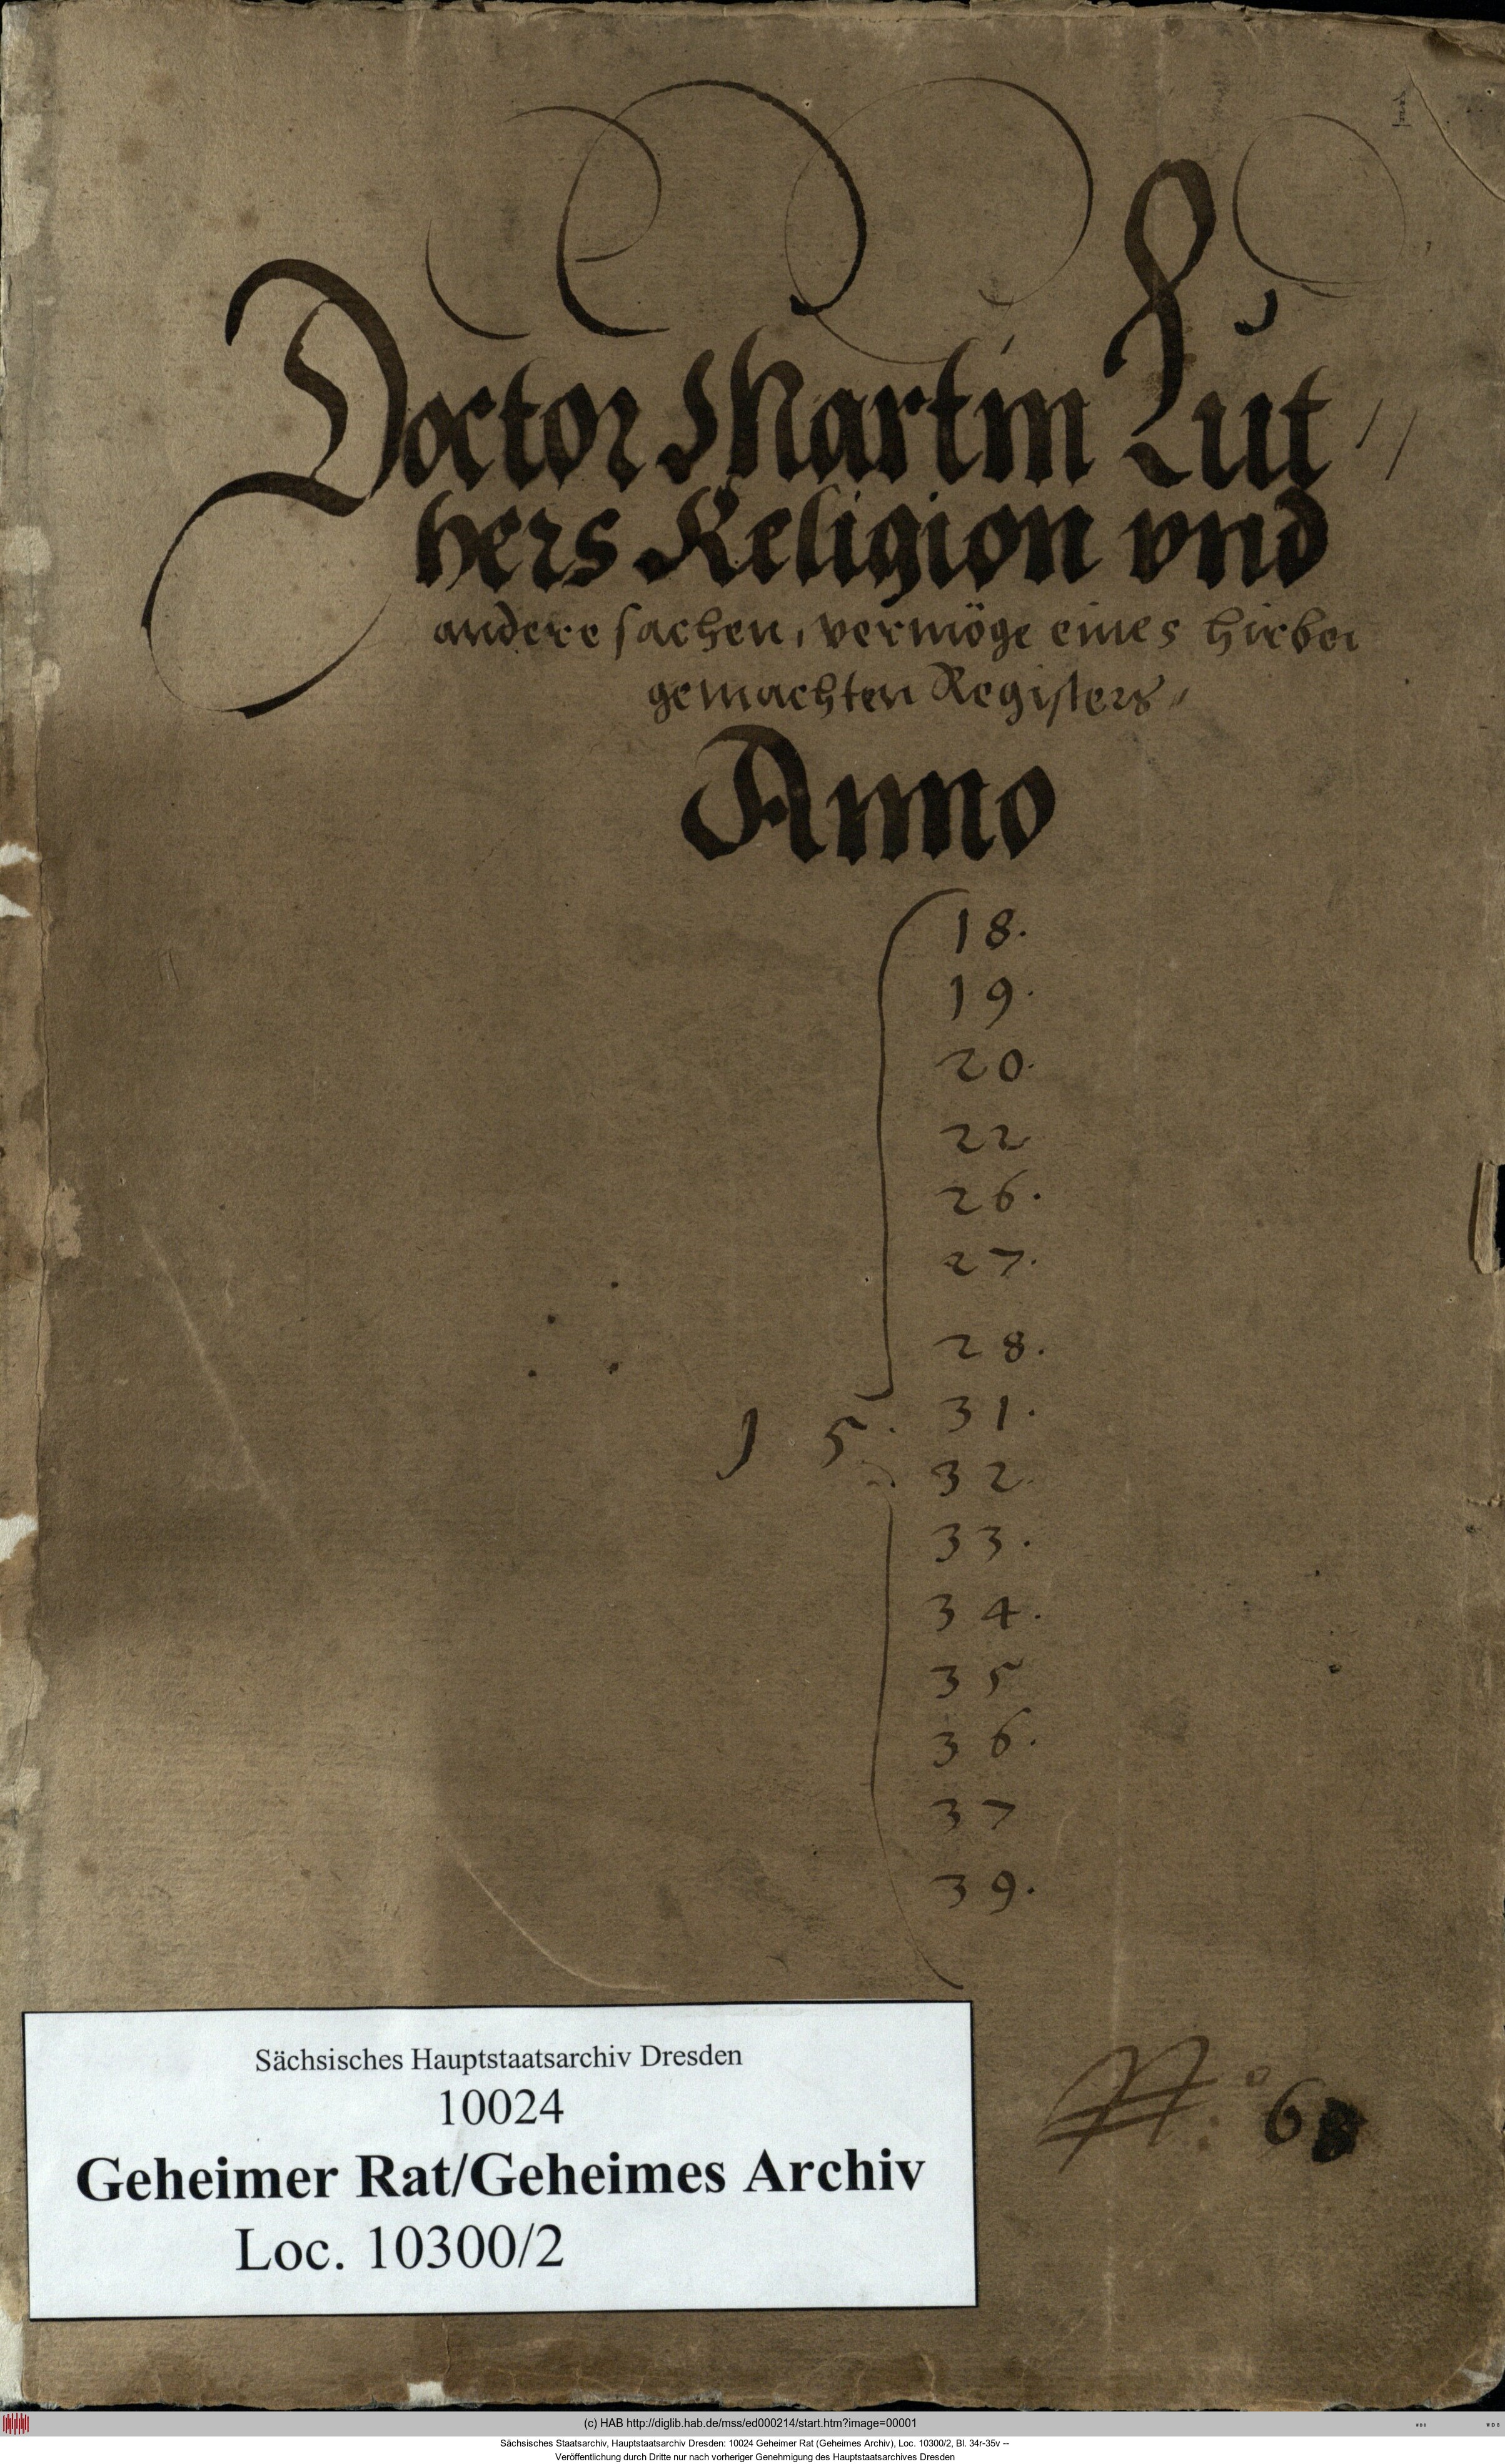 1
Doctor Martin Lut //
hers Religion vnd
andere sachen, vermöge eines hirbei
gemachten Registers //
Anno
18.
19.
20.
22
26.
27.
28.
1 5. 31.
32.
33.
34.
35
36.
37
39.
N:o 6
Sächsisches Hauptstaatsarchiv Dresden
10024
Geheimer Rat/Geheimes Archiv
Loc. 10300/2
(c) HAB http://diglib.hab.de/mss/ed000214/start.htm?image=00001
Sächsisches Staatsarchiv, Hauptstaatsarchiv Dresden: 10024 Geheimer Rat (Geheimes Archiv), Loc. 10300/2, Bl. 34r-35v --
Veröffentlichung durch Dritte nur nach vorheriger Genehmigung des Hauptstaatsarchives Dresden